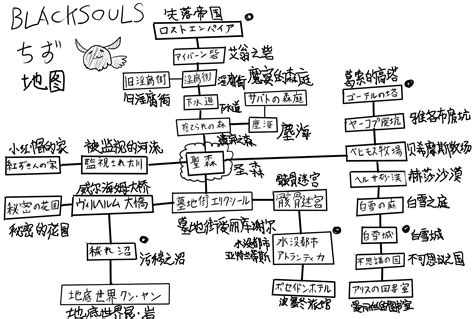 BLACKSOULS
ちず
地图
失落帝国
ロストエンパイア
アイバーン砦
艾翁之砦
旧淫腐街
淫腐街
淫腐街
魔宴的森庭
旧淫腐街
下水道
下水道
サバトの森庭
捨てられの森
塵海
塵海
葛素的高塔
ゴーテルの塔
ヤーコブ廃坑
雅各布废坑
ベヒモス牧場
贝希摩斯牧场
小红帽的家
被监视的河流
紅ずきんの家
監視された川
聖森
圣森
ヘルサ砂漠
赫莎沙漠
威尔海姆大桥
秘密の花園
ヴィルヘルム大橋
墓地街エリクシール
骸骨迷宮
骸骨迷宫
秘密的花园
墓地街
白雪の庭
白雪之庭
水没都市
水没都市
アトランティカ
亚特兰蒂斯
白雪城
白雪城
穢れ沼
污秽之沼
不思議の国
不可思议之国
地底世界クン・ヤン
地底世界昆·岩
ポセイドンホテル
アリスの図書室